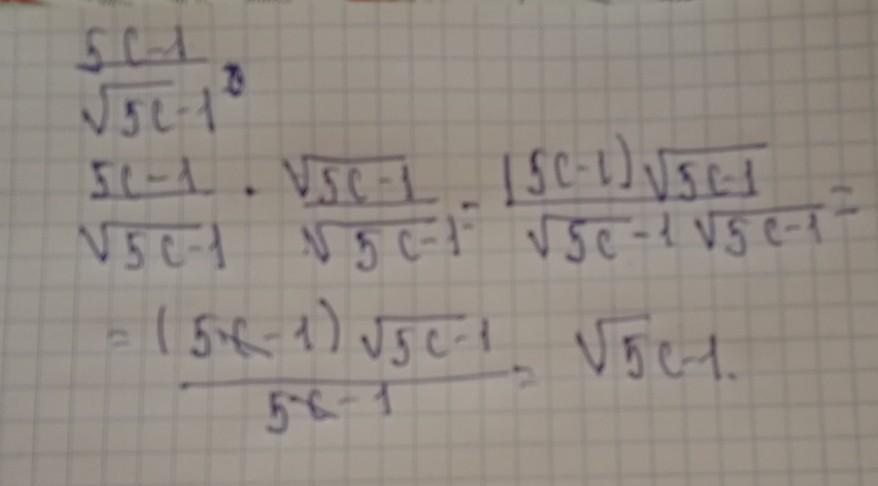 5c-1
√5c-1
5c-1 · √5c-1 = (5c-1)√5c-1 =
√5c-1 √5c-1 √5c-1 √5c-1
= (5c-1) √5c-1 = √5c-1.
5c-1